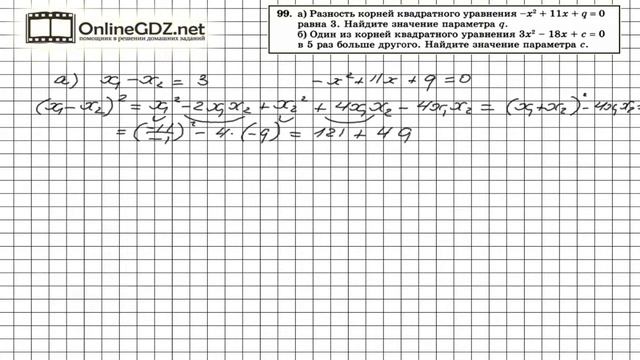 OnlineGDZ.net
помощник в решении домашних заданий
99. а) Разность корней квадратного уравнения −x² + 11x + q = 0
равна 3. Найдите значение параметра q.
б) Один из корней квадратного уравнения 3x² − 18x + c = 0
в 5 раз больше другого. Найдите значение параметра c.
а) x₁ − x₂ = 3 −x² + 11x + q = 0
(x₁ − x₂)² = x₁² − 2x₁x₂ + x₂² + 4x₁x₂ − 4x₁x₂ = (x₁+x₂)² − 4x₁x₂ =
= (−11/−1)² − 4·(−q) = 121 + 4q